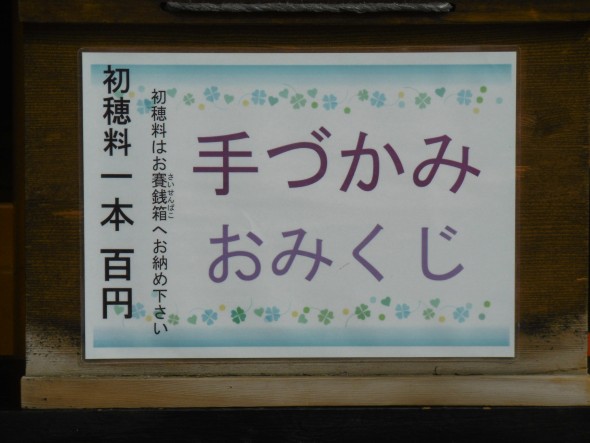 手づかみ
おみくじ
初穂料はお賽銭箱へお納め下さい
さいせんばこ
初穂料一本百円